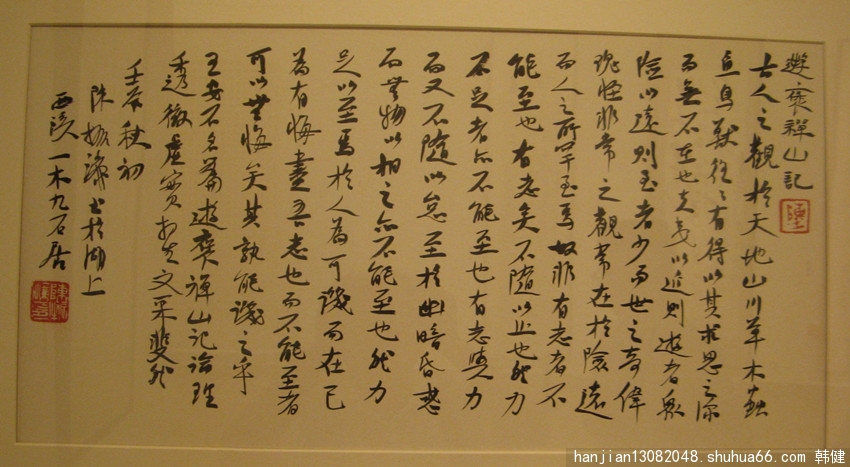 遊褒禪山記
古人之觀於天地山川草木蟲
魚鳥獸往々有得以其求思之深
而無不在也夫夷以近則遊者衆
險以遠則至者少而世之奇偉
瑰怪非常之觀常在於險遠
而人之所罕至焉故非有志者不
能至也有志矣不隨以止也然力
不足者亦不能至也有志與力
而又不隨以怠至於幽暗昏惑
而無物以相之亦不能至也然力
足以至焉於人為可譏而在己
為有悔盡吾志也而不能至者
可以無悔矣其孰能譏之乎
王安石名篇遊褒禪山記論理
透徹虛實相生文采斐然
壬辰秋初
陈振濂書於湖上
西溪一木九石居
hanjian13082048.shuhua66.com 韩健